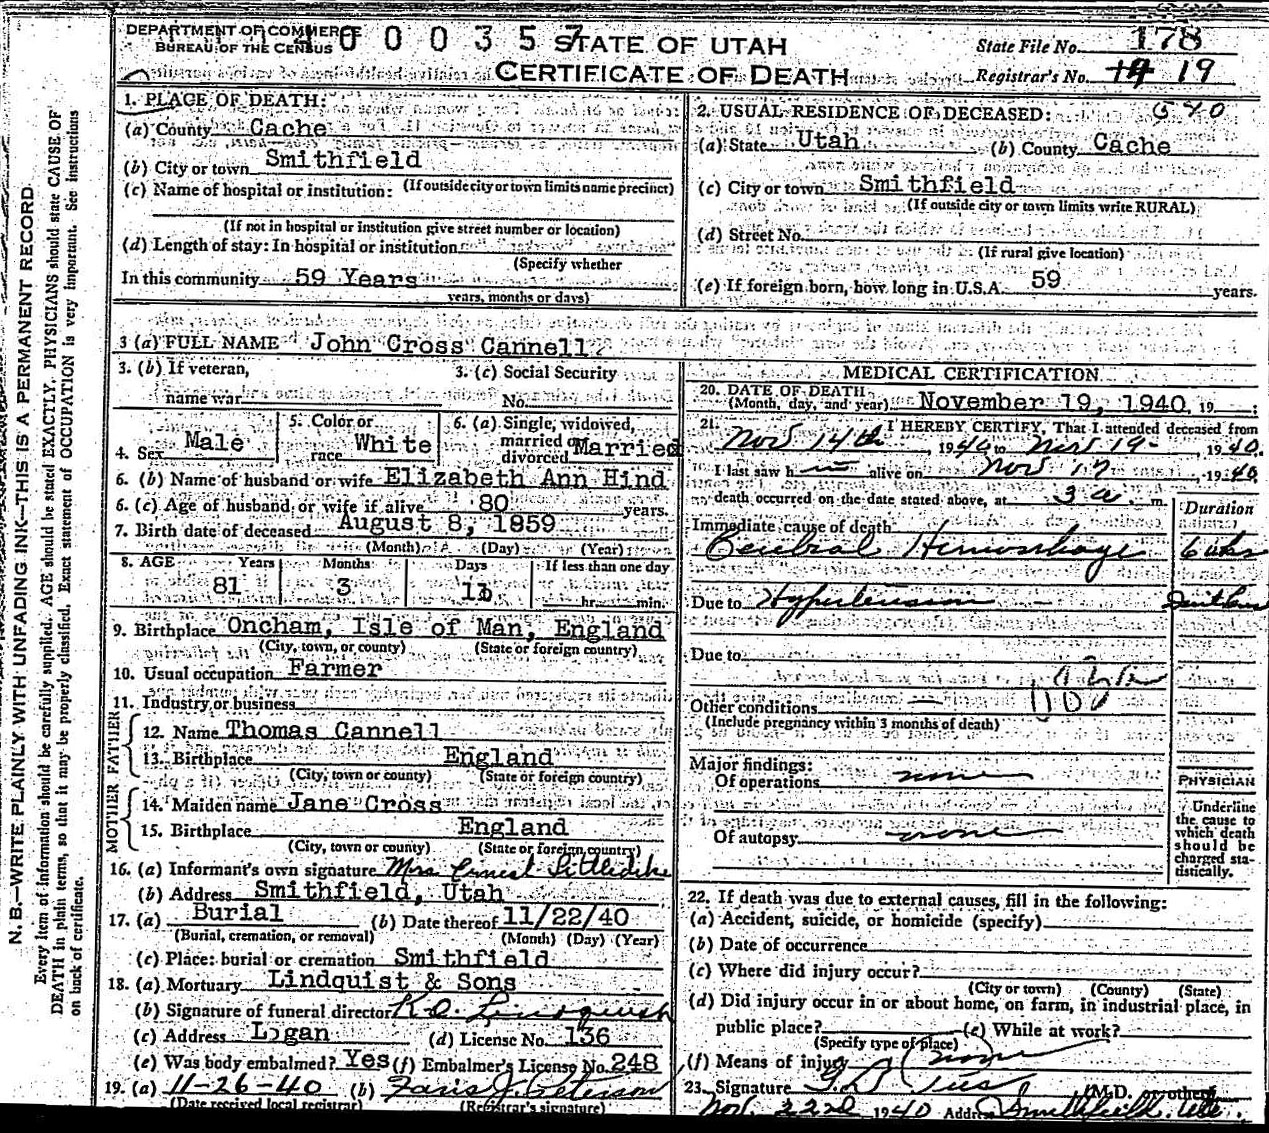 DEPARTMENT OF COMMERCE
BUREAU OF THE CENSUS
0 0 0 3 5 7
STATE OF UTAH
CERTIFICATE OF DEATH
State File No. 178
Registrar's No. 19
1. PLACE OF DEATH:
(a) County Cache
(b) City or town Smithfield
(c) Name of hospital or institution: (If outside city or town limits name precinct)
(If not in hospital or institution give street number or location)
(d) Length of stay: In hospital or institution
(Specify whether
In this community 59 Years
years, months or days)
2. USUAL RESIDENCE OF DECEASED:
(a) State Utah (b) County Cache
(c) City or town Smithfield
(If outside city or town limits write RURAL)
(d) Street No.
(If rural give location)
(e) If foreign born, how long in U.S.A. 59 years.
3 (a) FULL NAME John Cross Cannell
3. (b) If veteran,
name war
3. (c) Social Security
No.
4. Sex Male
5. Color or
race White
6. (a) Single, widowed,
married or
divorced Married
6. (b) Name of husband or wife Elizabeth Ann Hind
6. (c) Age of husband or wife if alive 80 years.
7. Birth date of deceased August 8, 1859
(Month) (Day) (Year)
8. AGE Years Months Days If less than one day
81 3 11
hr. min.
9. Birthplace Oncham, Isle of Man, England
(City, town, or county) (State or foreign country)
10. Usual occupation Farmer
11. Industry or business
FATHER
12. Name Thomas Cannell
13. Birthplace England
(City, town or county) (State or foreign country)
MOTHER
14. Maiden name Jane Cross
15. Birthplace England
(City, town or county) (State or foreign country)
16. (a) Informant's own signature Mrs Ernest Littledike
(b) Address Smithfield, Utah
17. (a) Burial (b) Date thereof 11/22/40
(Burial, cremation, or removal) (Month) (Day) (Year)
(c) Place: burial or cremation Smithfield
18. (a) Mortuary Lindquist & Sons
(b) Signature of funeral director
(c) Address Logan (d) License No. 136
(e) Was body embalmed? Yes (f) Embalmer's License No. 248
19. (a) 11-26-40 (b) Peterson
(Date received local registrar) (Registrar's signature)
MEDICAL CERTIFICATION
20. DATE OF DEATH
(Month, day, and year) November 19, 1940, 19 ;
21. I HEREBY CERTIFY, That I attended deceased from
Nov 14th, 1940 to Nov 19-, 1940.
I last saw him alive on Nov 19 1940
death occurred on the date stated above, at 3 a. m.
Duration
Immediate cause of death
Cerebral Hemorrhage
Due to Hypertension
Due to
Other conditions
(Include pregnancy within 3 months of death)
Major findings:
Of operations none
Of autopsy none
PHYSICIAN
Underline
the cause to
which death
should be
charged sta-
tistically.
22. If death was due to external causes, fill in the following:
(a) Accident, suicide, or homicide (specify)
(b) Date of occurrence
(c) Where did injury occur?
(City or town) (County) (State)
(d) Did injury occur in or about home, on farm, in industrial place, in
public place? (e) While at work?
(Specify type of place)
(f) Means of injury
23. Signature (M.D. or other)
Nov. 22nd 1940 Address Smithfield, Utah
N. B.—WRITE PLAINLY WITH UNFADING INK—THIS IS A PERMANENT RECORD
Every item of information should be carefully supplied. AGE should be stated EXACTLY. PHYSICIANS should state CAUSE OF
DEATH in plain terms, so that it may be properly classified. Exact statement of OCCUPATION is very important. See instructions
on back of certificate.